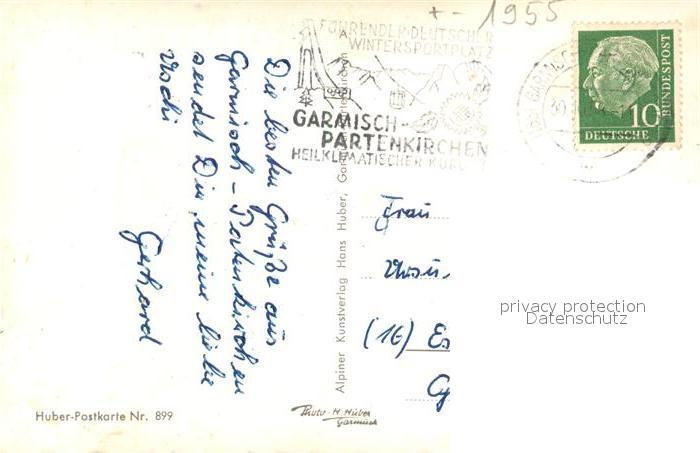 +- 1955
FÜHRENDER DEUTSCHER
WINTERSPORTPLATZ
GARMISCH-
PARTENKIRCHEN
HEILKLIMATISCHER KURORT
DEUTSCHE
BUNDESPOST
10
Die besten Grüße aus
Garmisch-Partenkirchen
sendet Dir, meine liebe
Uschi
Gerhard
Alpiner Kunstverlag Hans Huber, Garmisch-Partenkirchen
Frau
(16)
privacy protection
Datenschutz
Huber-Postkarte Nr. 899
Photo-H. Huber
Garmisch